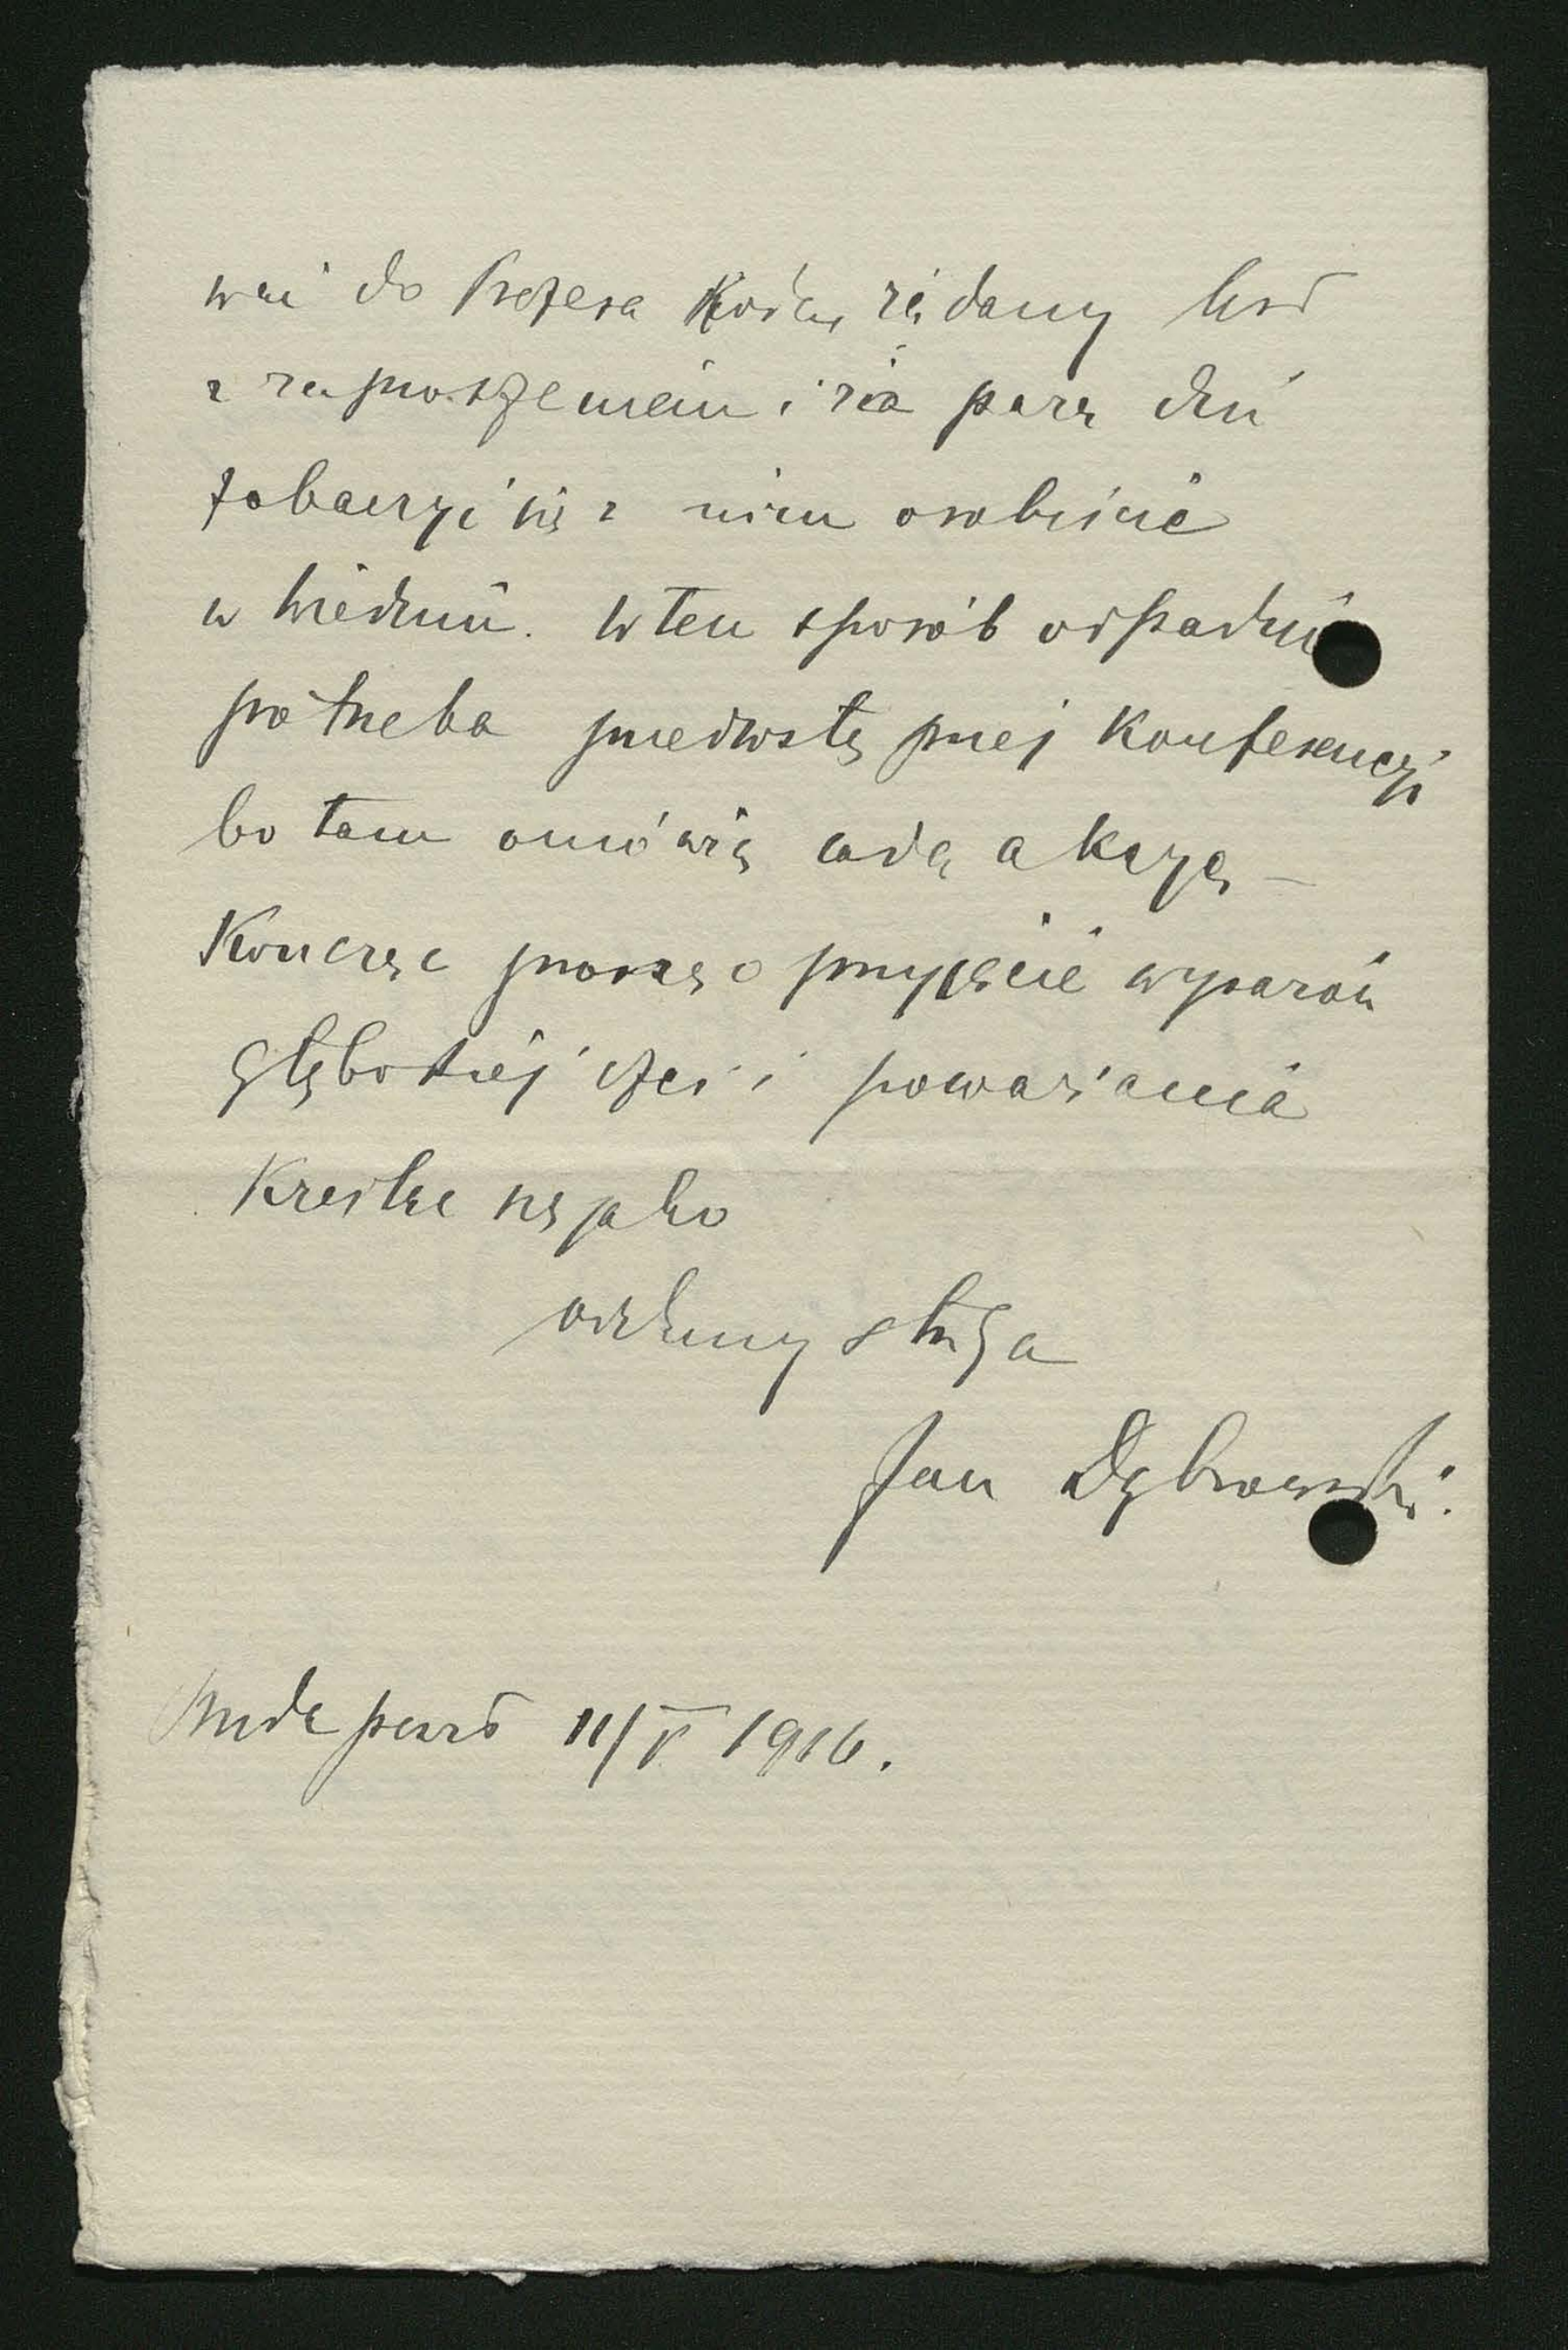 wać do Prezesa Koła żądany list
z zaproszeniem i za parę dni
zobaczyć się z nim osobiście
w Wiedniu. W ten sposób odpadnie
potrzeba przedwstępnej Konferencji
bo tam omówią całą akcyę –
Kończąc proszę o przyjęcie wyrazów
głębokiej czci i poważania
Kreślę się jako
oddany sługa
Jan Dąbrowski.
Budapeszt 11/V 1916.